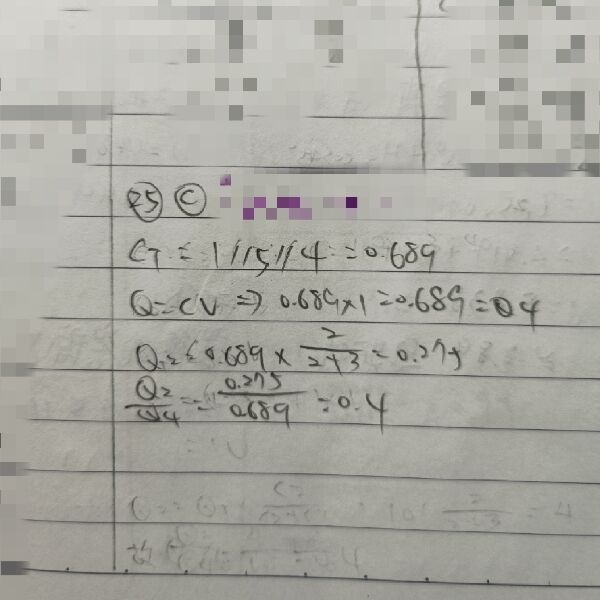 25 C
CT = 1//5//4 = 0.689
Q = CV => 0.689 × 1 = 0.689 = Q4
Q2 = 0.689 × 2/(2+3) = 0.275
Q2/Q4 = 0.275/0.689 = 0.4